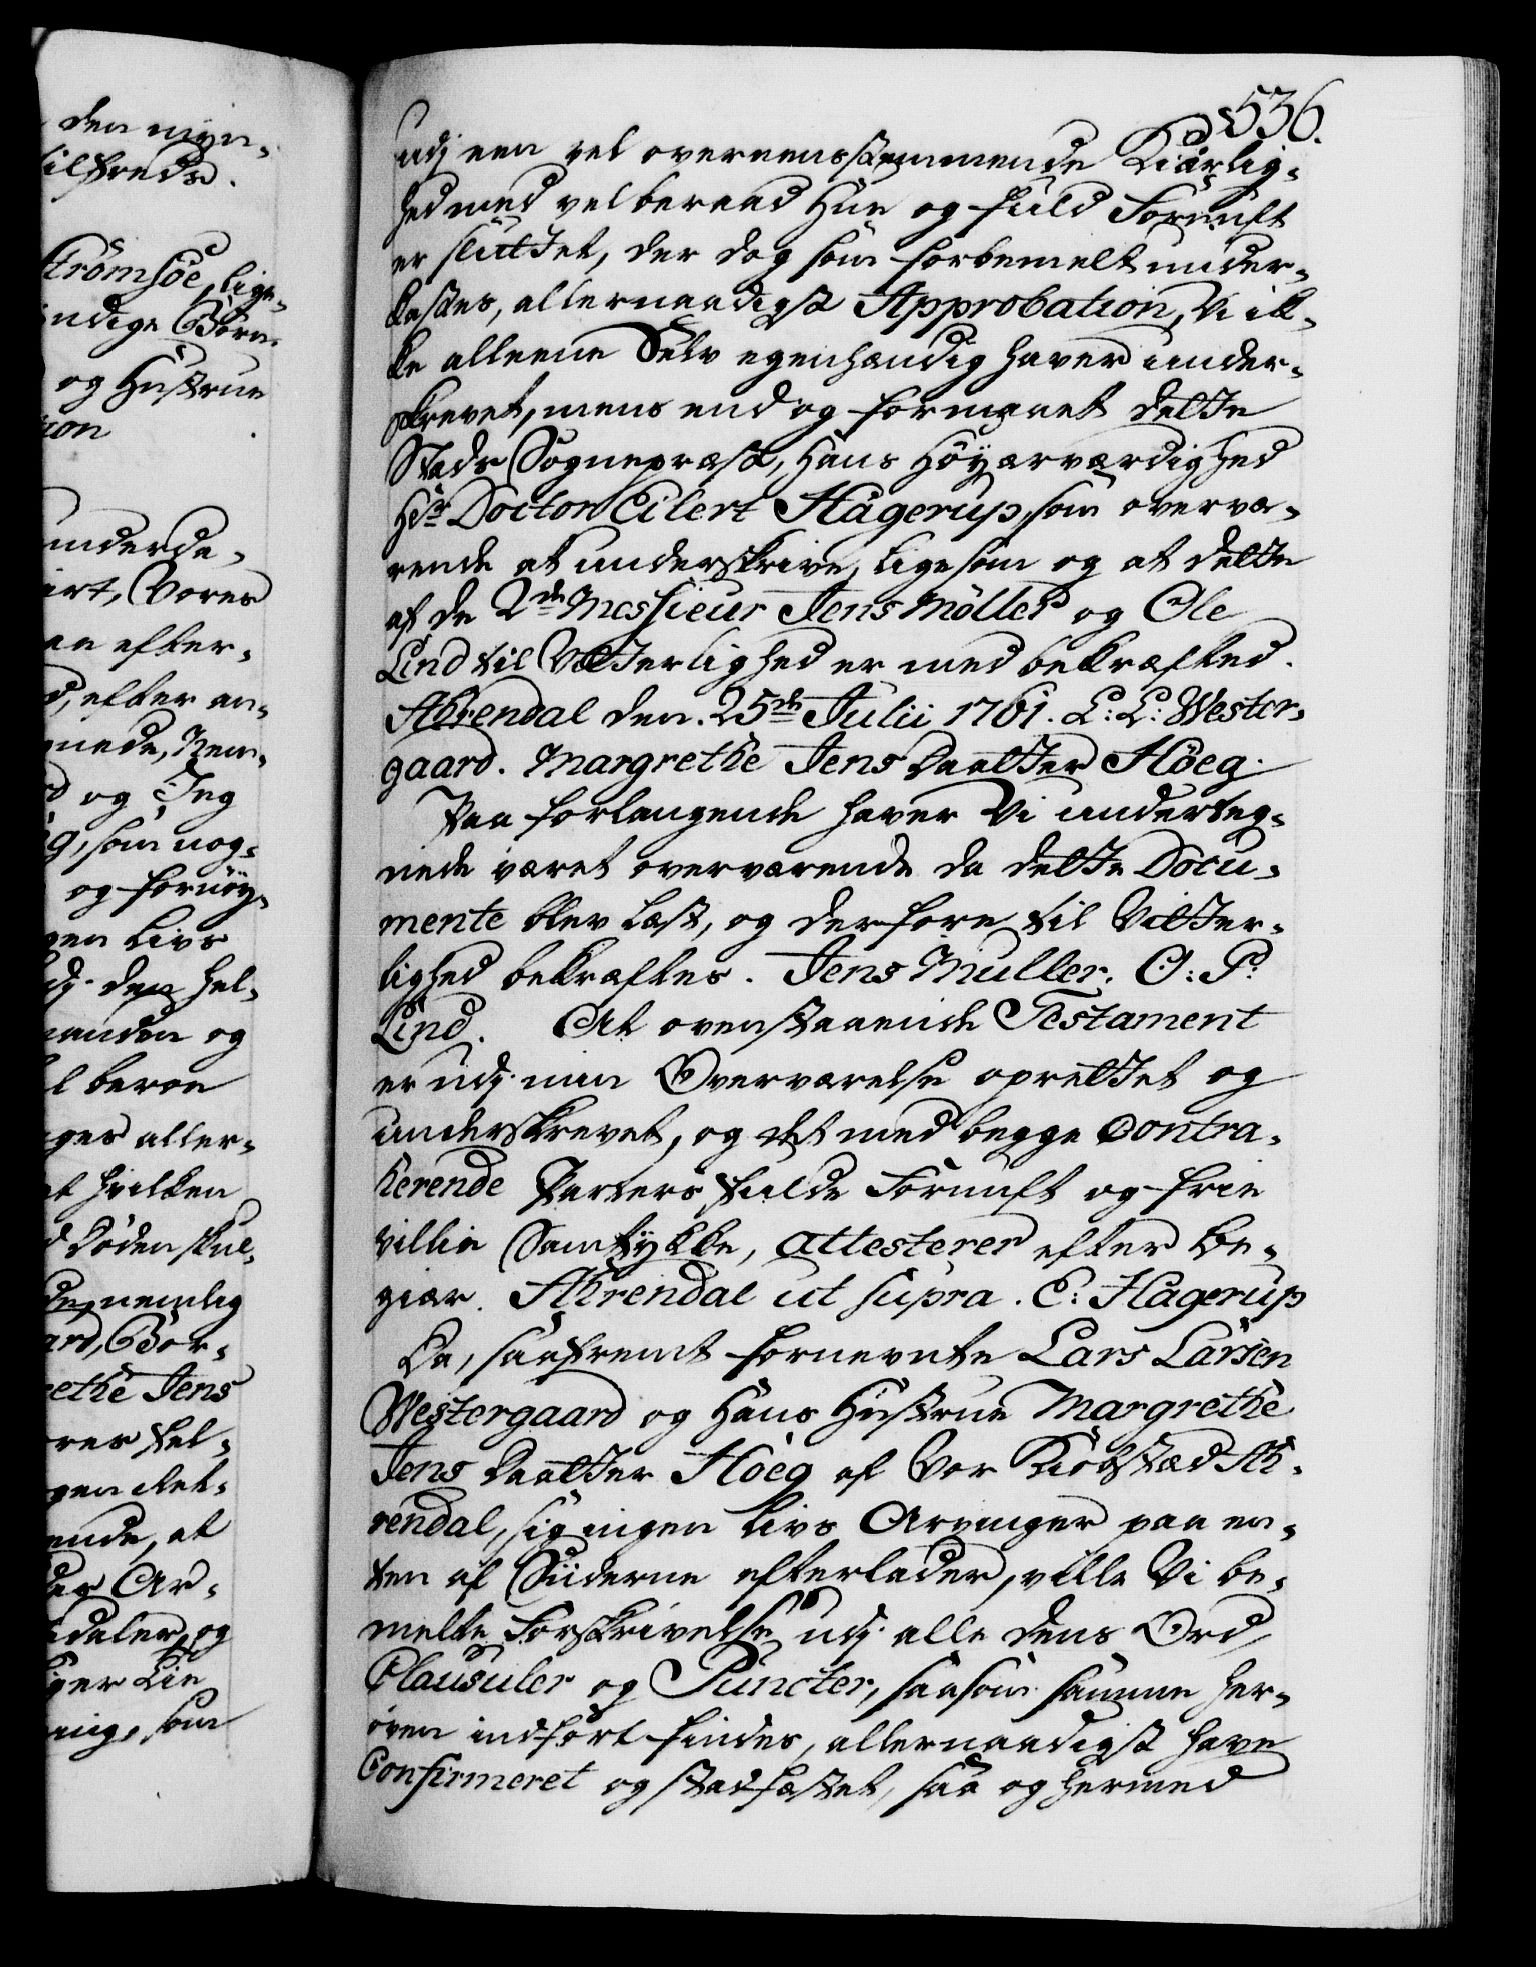 536.
udj een vel overeensstemmende Kiærlig-
hed med vel beraad Hue og fuld Fornuft
er sluttet, der dog som forbemelt under-
kastes, allernaadigst Approbation, Vi ik-
ke alleene Selv egenhændig haver under-
skrevet, mens end og formaaet dette
Stads Sognepræst, Hans Höyærværdighed
Hr Doctor Eilert Hagerup, som overvæ-
rende at underskrive, ligesom og at dette
af de 2de Messieur Jens Møller og Ole
Lind til Vitterlighed er med bekræfted.
Ahrendal den 25de Julii 1761. L: L: Wester-
gaard. Margrethe Jens Daatter Höeg.
Paa forlangende haver Vi underteg-
nede været overværende da dette Docu-
mente blev læst, og derfore til Vitter-
lighed bekræftes. Jens Muller. O: P:
Lind. At ovenstaaende Testament
er udj min Overværelse oprettet og
underskrevet, og det med begge Contra-
herende Parters fulde Fornuft og frie
villie Samtykke, attesterer efter Be-
giær. Ahrendal ut supra. E: Hagerup
Da, saafremt fornevnte Lars Larsen
Westergaard og Hans Hustrue Margrethe
Jens Daatter Höeg af Vor Kiøbstæd Ah-
rendal, sig ingen Livs Arvinger paa en-
ten af Siiderne efterlader, ville Vi be-
melte Forskrivelse udj alle dens Ord,
Clausuler og Puncter, saasom samme her-
oven indfört findes, allernaadigst have
Confirmeret og stadfæstet, saa og hermed
den myn-
tilfreds.
Strömsöe, lige-
og Hustrue
efter-
efter an-
og Jeg
som nog-
og fornöy-
gen Livs
den hel-
og
aller-
hvilken
Döden skul-
nemlig
Bor-
Jens
at
Ar-
og
som